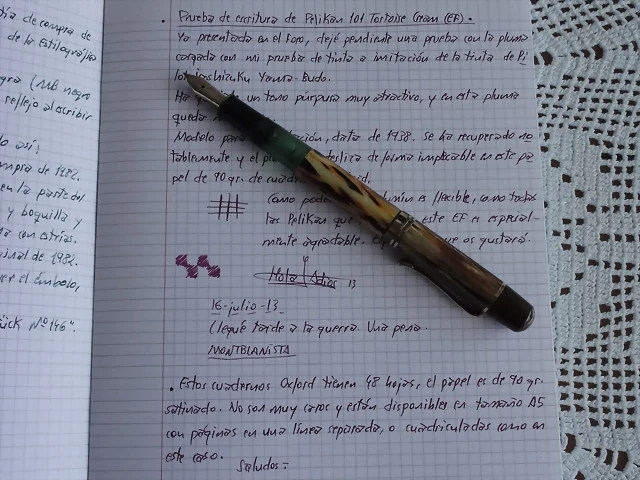 día de compra de
de la Estilográfica
negra (MB negro
reflejo al escribir
do así:
compra de 1982.
en la parte del
y boquilla y
na con estrías.
original de 1982.
ver el émbolo,
ück Nº 146".
. Prueba de escritura de Pelikan 101 Tortoise Cream (EF).
Ya presentada en el Foro, dejé pendiente una prueba con la pluma
cargada con mi prueba de tinta a imitación de la tinta de Pi
lot Iroshizuku Yama-Budo.
un tono púrpura muy atractivo, y en esta pluma
queda
Modelo para data de 1938. Se ha recuperado no
tablemente y el desliza de forma impecable en este pa
pel de 90 gr. de
como es flexible, como todas
las Pelikan que este EF es especial-
mente agradable. que os gustará.
Hola Adiós 13
16-julio-13.
Llegué tarde a la guerra. Una pena.
MONTBLANISTA
. Estos cuadernos Oxford tienen 48 hojas, el papel es de 90 gr.
satinado. No son muy caros y están disponibles en tamaño A5
con páginas en una línea separada, o cuadriculadas como en
este caso.
Saludos=